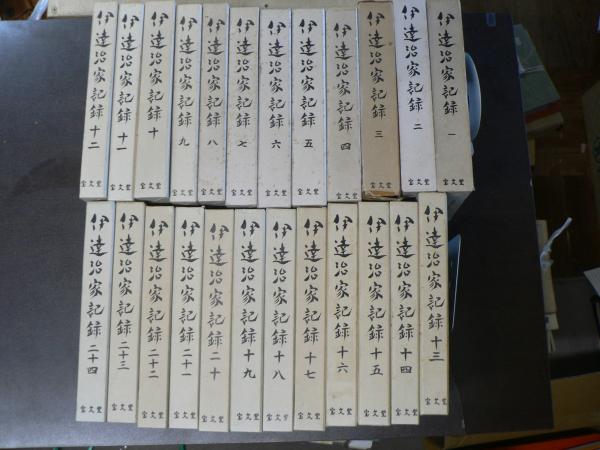 伊達治家記録 一 宝文堂
伊達治家記録 二 宝文堂
伊達治家記録 三 宝文堂
伊達治家記録 四 宝文堂
伊達治家記録 五 宝文堂
伊達治家記録 六 宝文堂
伊達治家記録 七 宝文堂
伊達治家記録 八 宝文堂
伊達治家記録 九 宝文堂
伊達治家記録 十 宝文堂
伊達治家記録 十一 宝文堂
伊達治家記録 十二 宝文堂
伊達治家記録 十三 宝文堂
伊達治家記録 十四 宝文堂
伊達治家記録 十五 宝文堂
伊達治家記録 十六 宝文堂
伊達治家記録 十七 宝文堂
伊達治家記録 十八 宝文堂
伊達治家記録 十九 宝文堂
伊達治家記録 二十 宝文堂
伊達治家記録 二十一 宝文堂
伊達治家記録 二十二 宝文堂
伊達治家記録 二十三 宝文堂
伊達治家記録 二十四 宝文堂